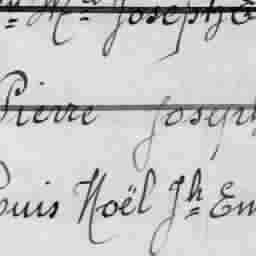 Mª Joseph
Pierre Joseph
Louis Noël Jh Em